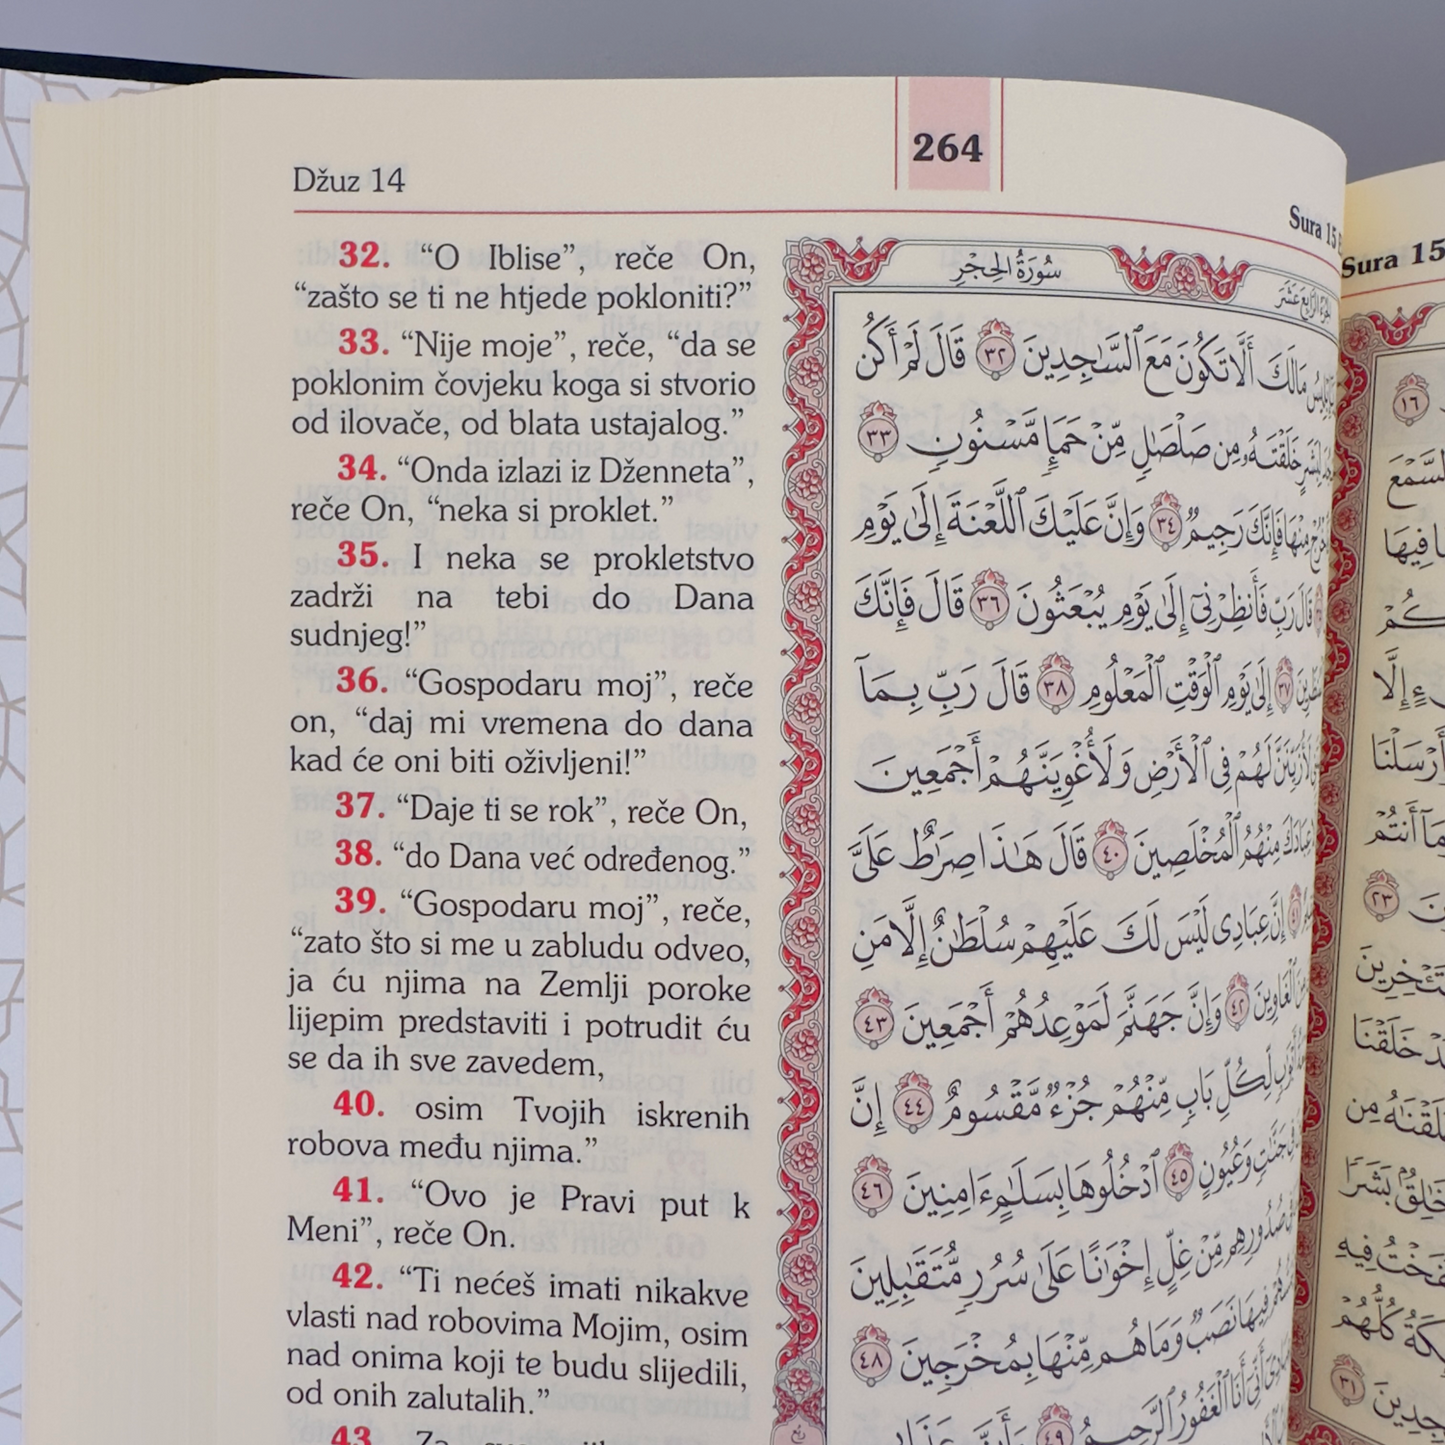 264
Džuz 14
Sura 15
32. “O Iblise”, reče On,
“zašto se ti ne htjede pokloniti?”
33. “Nije moje”, reče, “da se
poklonim čovjeku koga si stvorio
od ilovače, od blata ustajalog.”
34. “Onda izlazi iz Dženneta”,
reče On, “neka si proklet.”
35. I neka se prokletstvo
zadrži na tebi do Dana
sudnjeg!”
36. “Gospodaru moj”, reče
on, “daj mi vremena do dana
kad će oni biti oživljeni!”
37. “Daje ti se rok”, reče On,
38. “do Dana već određenog.”
39. “Gospodaru moj”, reče,
“zato što si me u zabludu odveo,
ja ću njima na Zemlji poroke
lijepim predstaviti i potrudit ću
se da ih sve zavedem,
40. osim Tvojih iskrenih
robova među njima.”
41. “Ovo je Pravi put k
Meni”, reče On.
42. “Ti nećeš imati nikakve
vlasti nad robovima Mojim, osim
nad onima koji te budu slijedili,
od onih zalutalih.”
43. Za
سُورَةُ الحِجْرِ
الجُزْءُ الرَّابِعَ عَشَرَ
مَالَكَ أَلَّا تَكُونَ مَعَ ٱلسَّٰجِدِينَ ٣٢ قَالَ لَمْ أَكُن
خَلَقْتَهُۥ مِن صَلْصَٰلٍ مِّنْ حَمَإٍ مَّسْنُونٍ ٣٣
مِنْهَا فَإِنَّكَ رَجِيمٌ ٣٤ وَإِنَّ عَلَيْكَ ٱللَّعْنَةَ إِلَىٰ يَوْمِ
قَالَ رَبِّ فَأَنظِرْنِىٓ إِلَىٰ يَوْمِ يُبْعَثُونَ ٣٦ قَالَ فَإِنَّكَ
٣٧ إِلَىٰ يَوْمِ ٱلْوَقْتِ ٱلْمَعْلُومِ ٣٨ قَالَ رَبِّ بِمَآ
لَأُزَيِّنَنَّ لَهُمْ فِى ٱلْأَرْضِ وَلَأُغْوِيَنَّهُمْ أَجْمَعِينَ
عِبَادَكَ مِنْهُمُ ٱلْمُخْلَصِينَ ٤٠ قَالَ هَٰذَا صِرَٰطٌ عَلَىَّ
٤١ إِنَّ عِبَادِى لَيْسَ لَكَ عَلَيْهِمْ سُلْطَٰنٌ إِلَّا مَنِ
مِنَ ٱلْغَاوِينَ ٤٢ وَإِنَّ جَهَنَّمَ لَمَوْعِدُهُمْ أَجْمَعِينَ ٤٣
لِكُلِّ بَابٍ مِّنْهُمْ جُزْءٌ مَّقْسُومٌ ٤٤ إِنَّ
جَنَّٰتٍ وَعُيُونٍ ٤٥ ٱدْخُلُوهَا بِسَلَٰمٍ ءَامِنِينَ ٤٦
صُدُورِهِم مِّنْ غِلٍّ إِخْوَٰنًا عَلَىٰ سُرُرٍ مُّتَقَٰبِلِينَ
فِيهَا نَصَبٌ وَمَا هُم مِّنْهَا بِمُخْرَجِينَ ٤٨
أَنِّىٓ أَنَا ٱلْغَفُورُ ٱلرَّحِيمُ ٤٩ وَأَنَّ
Sura 15
١٦
ٱلسَّمْعَ
فِيهَا
إِلَّا
أَنتُمْ
٢٣
خَلَقْنَا
فِيهِ
كُلُّهُمْ
٣١